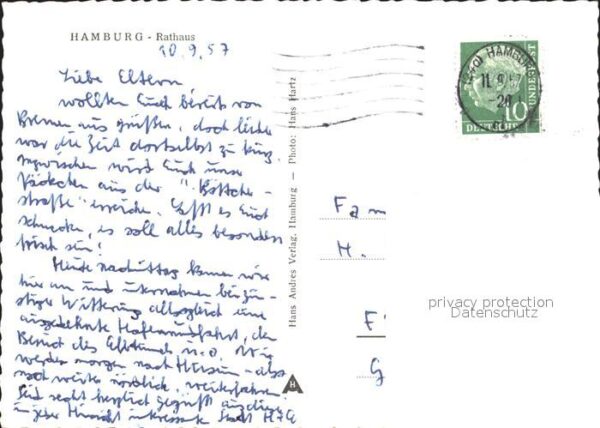 HAMBURG - Rathaus
10.9.57
Liebe Eltern
wollten Euch bereits von
Bremen aus grüßen, doch leider
war die Zeit dortselbst zu kurz
inzwischen wird Euch unser
Päckchen aus der "Böttcher-
straße" erreichen. Laßt es Euch
schmecken, es soll alles besonders
frisch sein!
Heute nachmittag kamen wir
hier an und unternahmen bei gün-
stiger Witterung alsogleich eine
ausgedehnte Hafenrundfahrt, den
Besuch des Elbtunnels u.a. Wir
werden morgen nach Husum - also
noch weiter nördlich, weiterfahren
Seid recht herzlich gegrüßt aus dieser
in jeder Hinsicht interessanten Stadt
Hans Andres Verlag, Hamburg — Photo: Hans Hartz
H
HAMBURG
11.9.57
-20
10
DEUTSCHE
BUNDESPOST
Fam
H.
F
G
privacy protection
Datenschutz